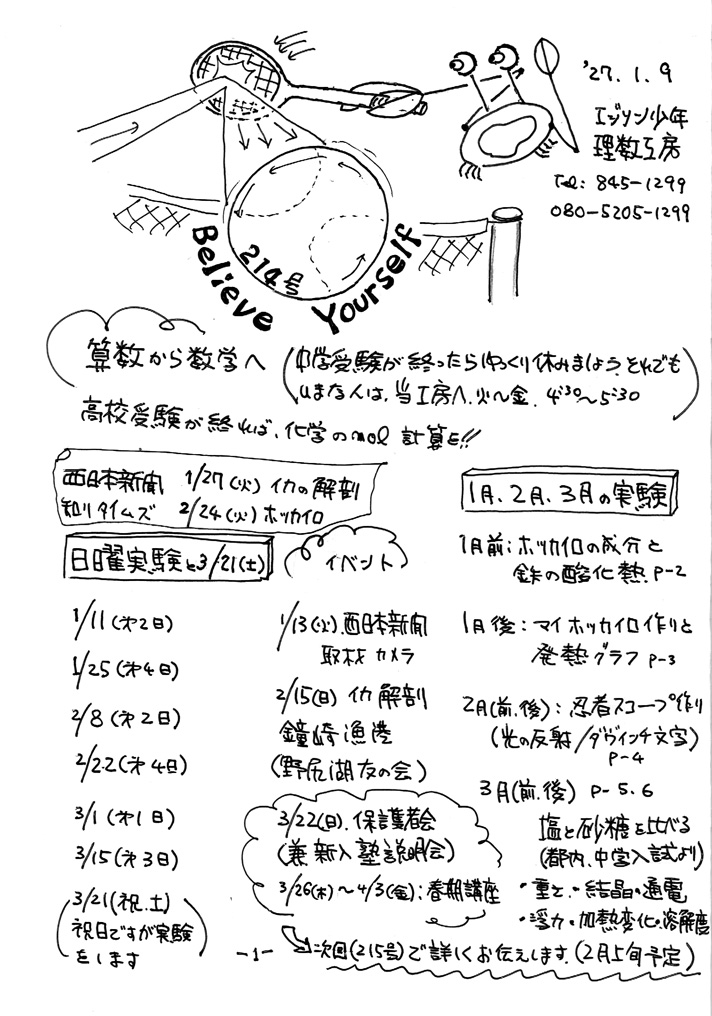 '27.1.9
エジソン少年
理数工房
Tel: 845-1299
080-5205-1299
214号
Believe Yourself
算数から数学へ
(中学受験が終ったらゆっくり休みましょう。それでも
ひまな人は、当工房へ、火〜金、4:30〜5:30)
高校受験が終れば、化学のmol計算を!!
西日本新聞 1/27(火) イカの解剖
知リタイムズ 2/24(火) ホッカイロ
1月、2月、3月の実験
日曜実験と3/21(土)
1/11(才2日)
1/25(才4日)
2/8(才2日)
2/22(才4日)
3/1(才1日)
3/15(才3日)
(3/21(祝、土)
祝日ですが実験
をします)
イベント
1/13(火)西日本新聞
取材 カメラ
2/15(日) イカ解剖
鐘崎漁港
(野尻湖友の会)
3/22(日)、保護者会
(兼 新入塾説明会)
3/26(木)〜4/3(金):春期講座
1月前:ホッカイロの成分と
鉄の酸化熱 P-2
1月後:マイホッカイロ作りと
発熱グラフ P-3
2月(前、後):忍者スコープ作り
(光の反射/ダヴィンチ文字)
P-4
3月(前、後) P-5.6
塩と砂糖を比べる
(都内、中学入試より)
・重さ・結晶・通電
・浮力・加熱変化・溶解度
次回(215号)で詳しくお伝えします。(2月上旬予定)
-1-